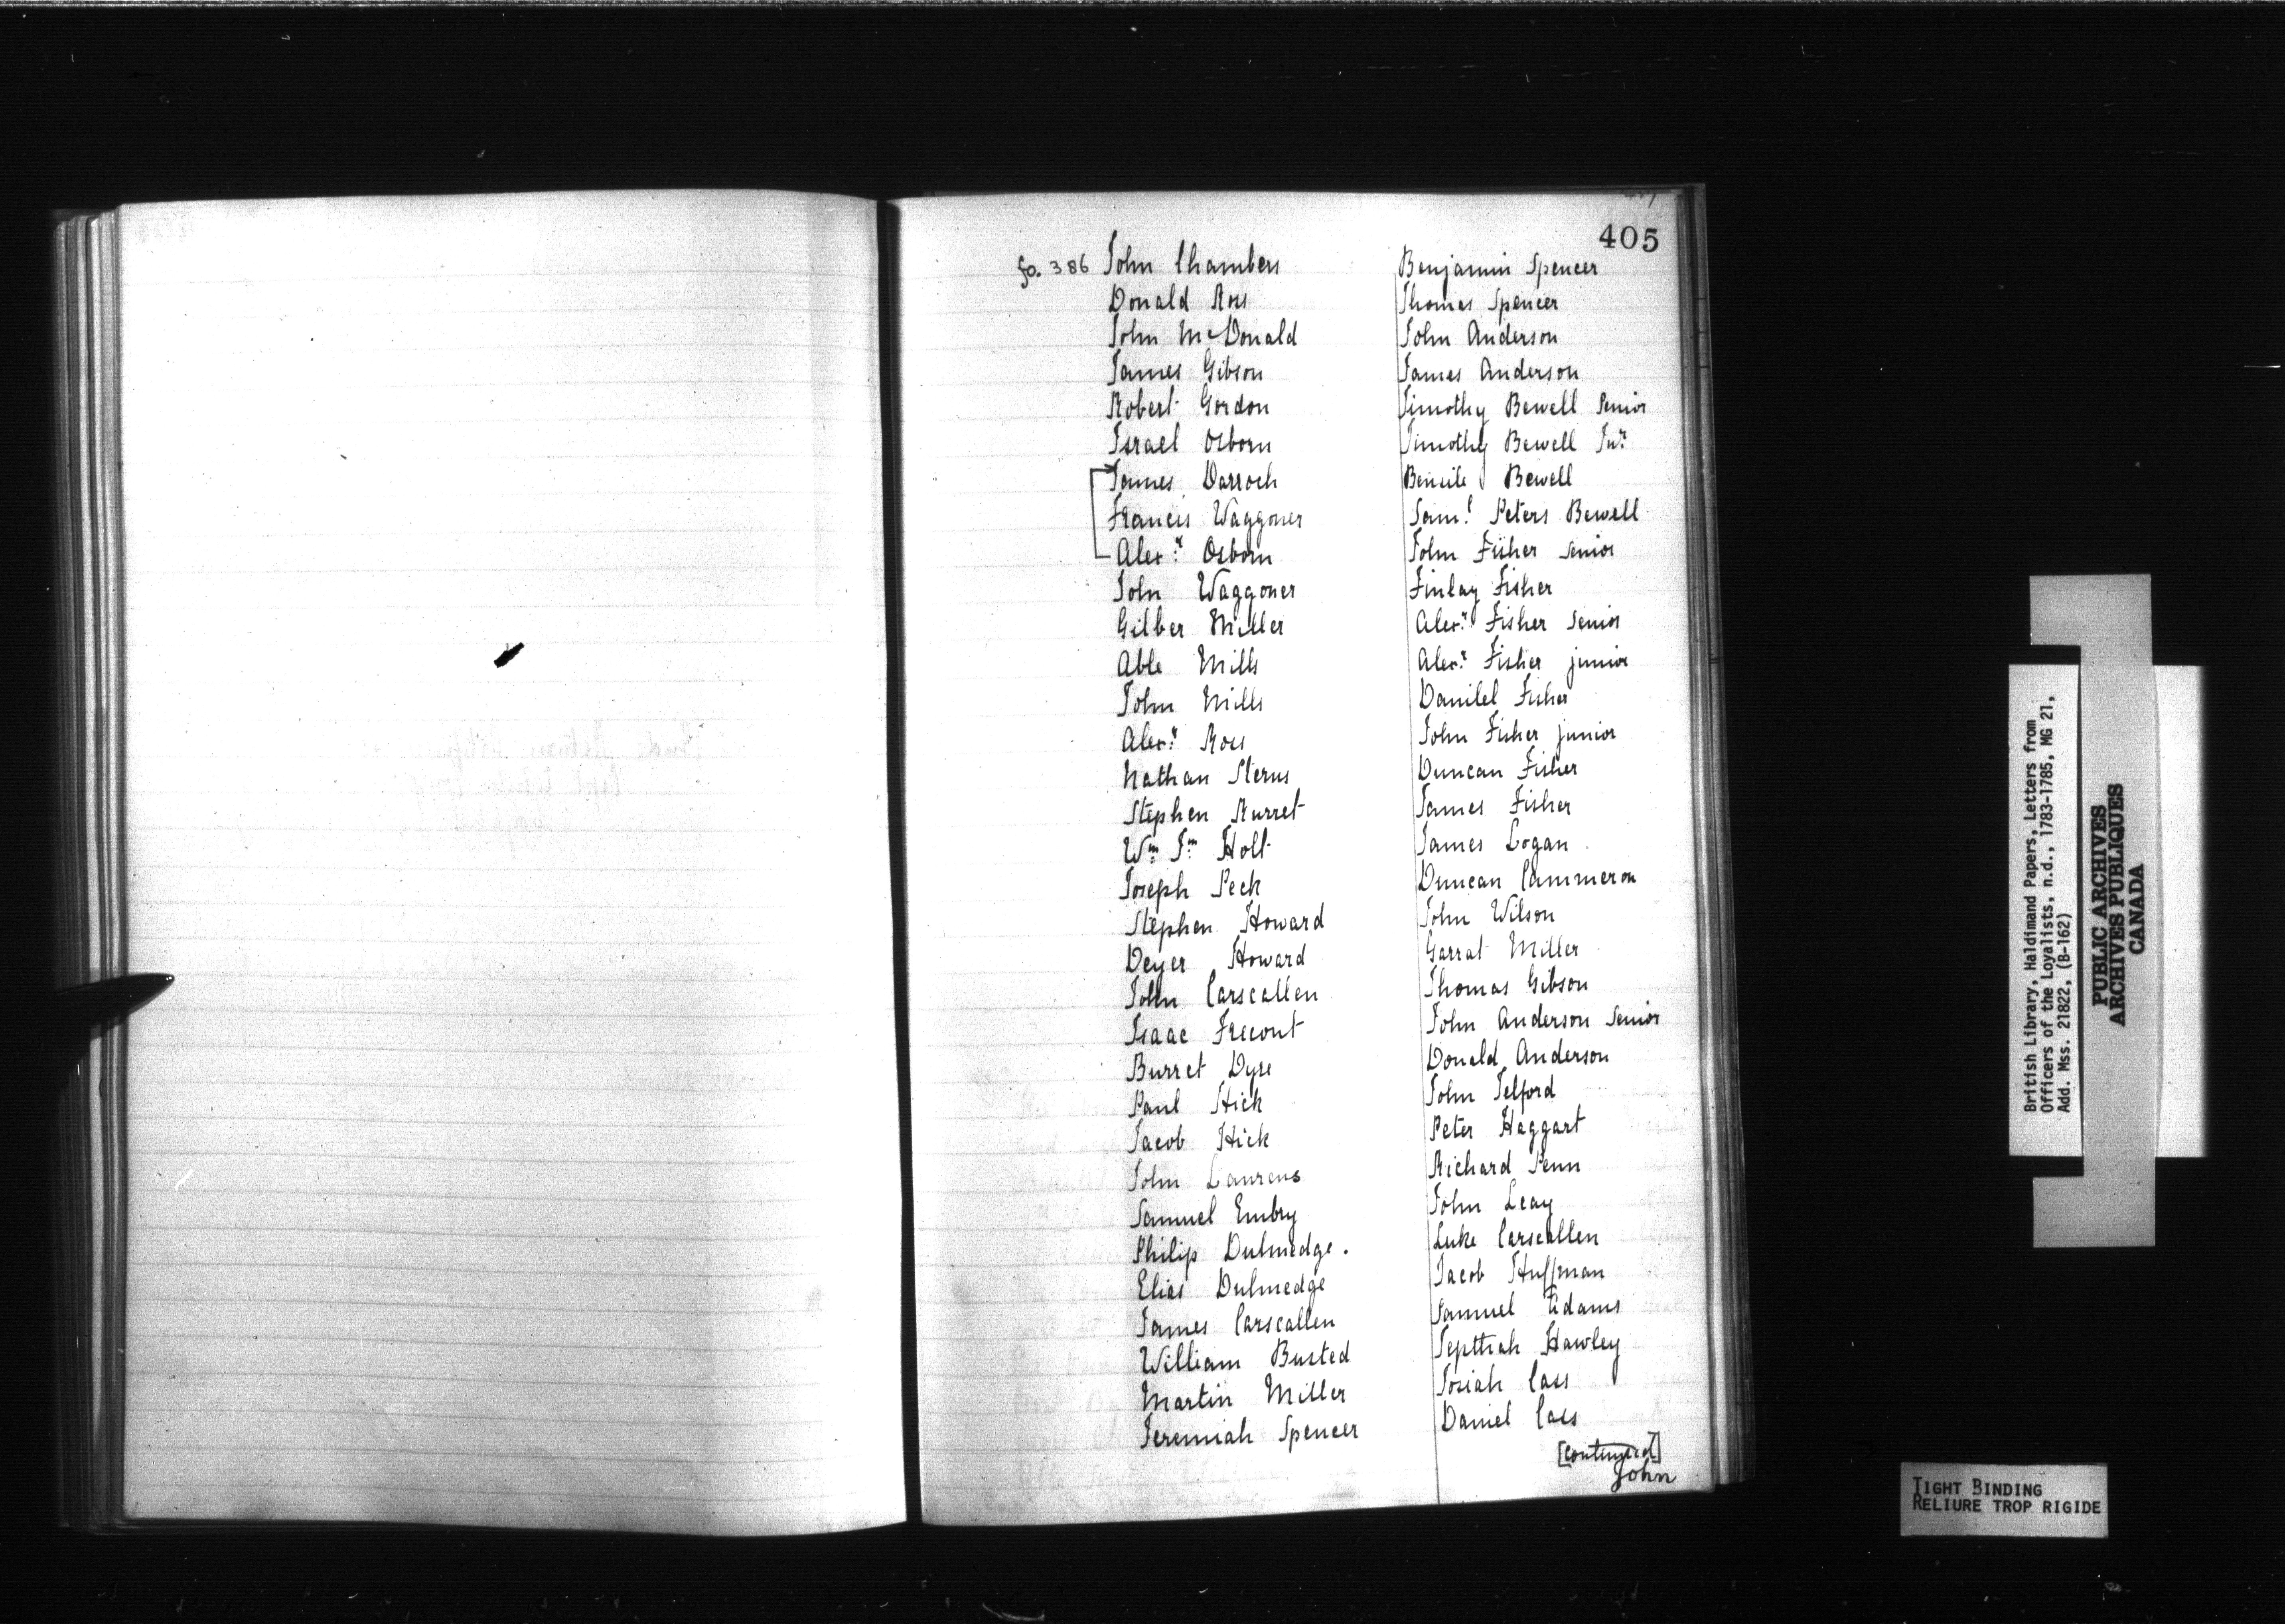 405
fo. 386
John Chambers
Donald Ross
John McDonald
James Gibson
Robert Gordon
Israel Osborn
James Darroch
Francis Waggoner
Alexr Osborn
John Waggoner
Gilber Miller
Able Mills
John Mills
Alexr Ross
Nathan Sterns
Stephen Burret
Wm Jm Holt
Joseph Peck
Stephen Howard
Deyer Howard
John Carscallen
Isaac Frecont
Burret Dyre
Paul Hick
Jacob Hick
John Laurens
Samuel Embry
Philip Dulmedge.
Elias Dulmedge
James Carscallen
William Busted
Martin Miller
Jeremiah Spencer
Benjamin Spencer
Thomas Spencer
John Anderson
James Anderson
Timothy Bewell Senior
Timothy Bewell Junr
Bewell
Saml Peters Bewell
John Fisher Senior
Finlay Fisher
Alexr Fisher Senior
Alexr Fisher junior
Daniel Fisher
John Fisher junior
Duncan Fisher
James Fisher
James Logan
Duncan Cammeron
John Wilson
Garrat Miller
Thomas Gibson
John Anderson Senior
Donald Anderson
John Telford
Peter Haggart
Richard Penn
John Leay
Luke Carscallen
Jacob Huffman
Samuel Adams
Jepthah Hawley
Josiah Cass
Daniel Cass
[continued]
John
British Library, Haldimand Papers, Letters from
Officers of the Loyalists, n.d., 1783-1785, MG 21,
Add. Mss. 21822, (B-162)
PUBLIC ARCHIVES
ARCHIVES PUBLIQUES
CANADA
TIGHT BINDING
RELIURE TROP RIGIDE